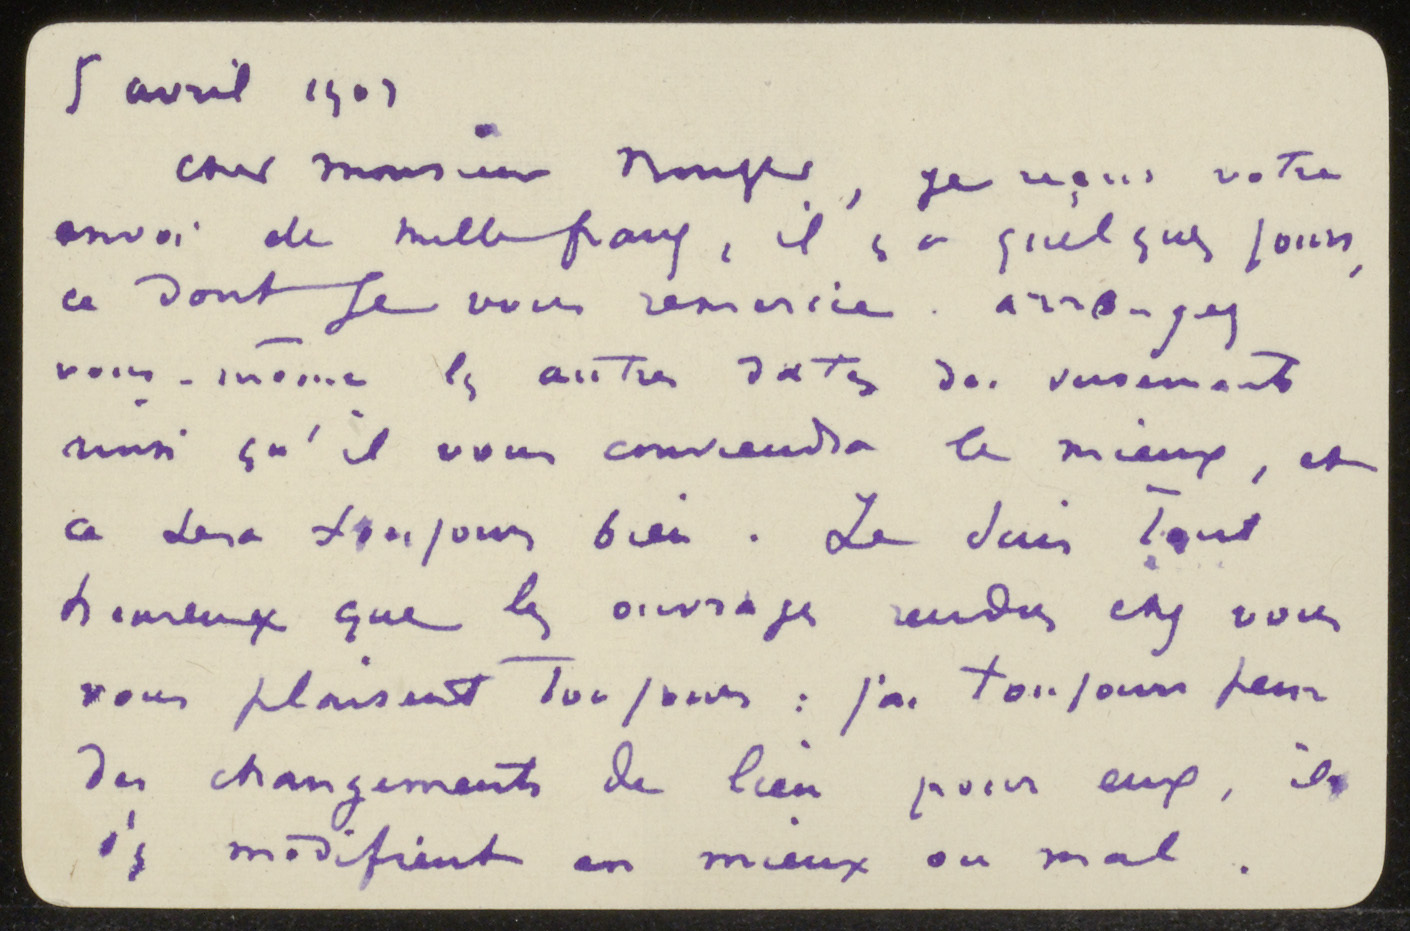 5 avril 1903
cher monsieur Rouger, je reçus votre
envoi de mille francs, il y a quelques jours,
ce dont je vous remercie. arrangez
vous-même les autres dates des versements
ainsi qu'il vous conviendra le mieux, et
ce sera toujours bien. Je suis tout
heureux que les ouvrages rendus chez vous
vous plaisent toujours : j'ai toujours peur
des changements de lieu pour eux, ils
s'y modifient en mieux ou mal.